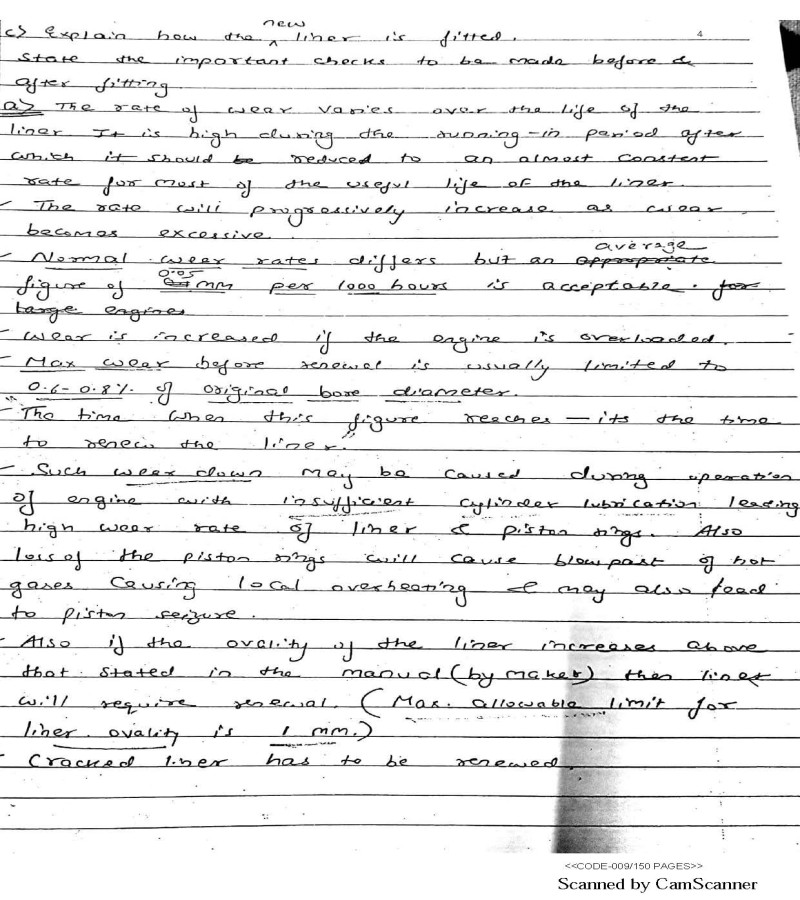 new
4
c) Explain how the ^ liner is fitted.
State the important checks to be made before &
after fitting
a) The rate of wear varies over the life of the
liner It is high during the running-in period after
which it should be reduced to an almost constent
rate for most of the useful life of the liner.
- The rate will progressively increase as wear
becomes excessive.
average
- Normal wear rates differs but an appropriate
0.05
figure of mm per 1000 hours is acceptable. for
large engines
- wear is increased if the engine is overloaded.
- Max wear before renewal is usually limited to
0.6-0.8% of original bore diameter.
- The time when this figure reaches - its the time
to renew the liner.
- Such wear down may be caused during operation
of engine with insufficient cylinder lubrication leading
high wear rate of liner & piston rings. Also
loss of the piston rings will cause blowpast of hot
gases causing local overheating & may also lead
to piston seizure.
- Also if the ovality of the liner increases above
that stated in the manual (by maker) then liner
will require renewal. (Max. allowable limit for
liner ovality is 1 mm.)
- Cracked liner has to be renewed.
<<CODE-009/150 PAGES>>
Scanned by CamScanner